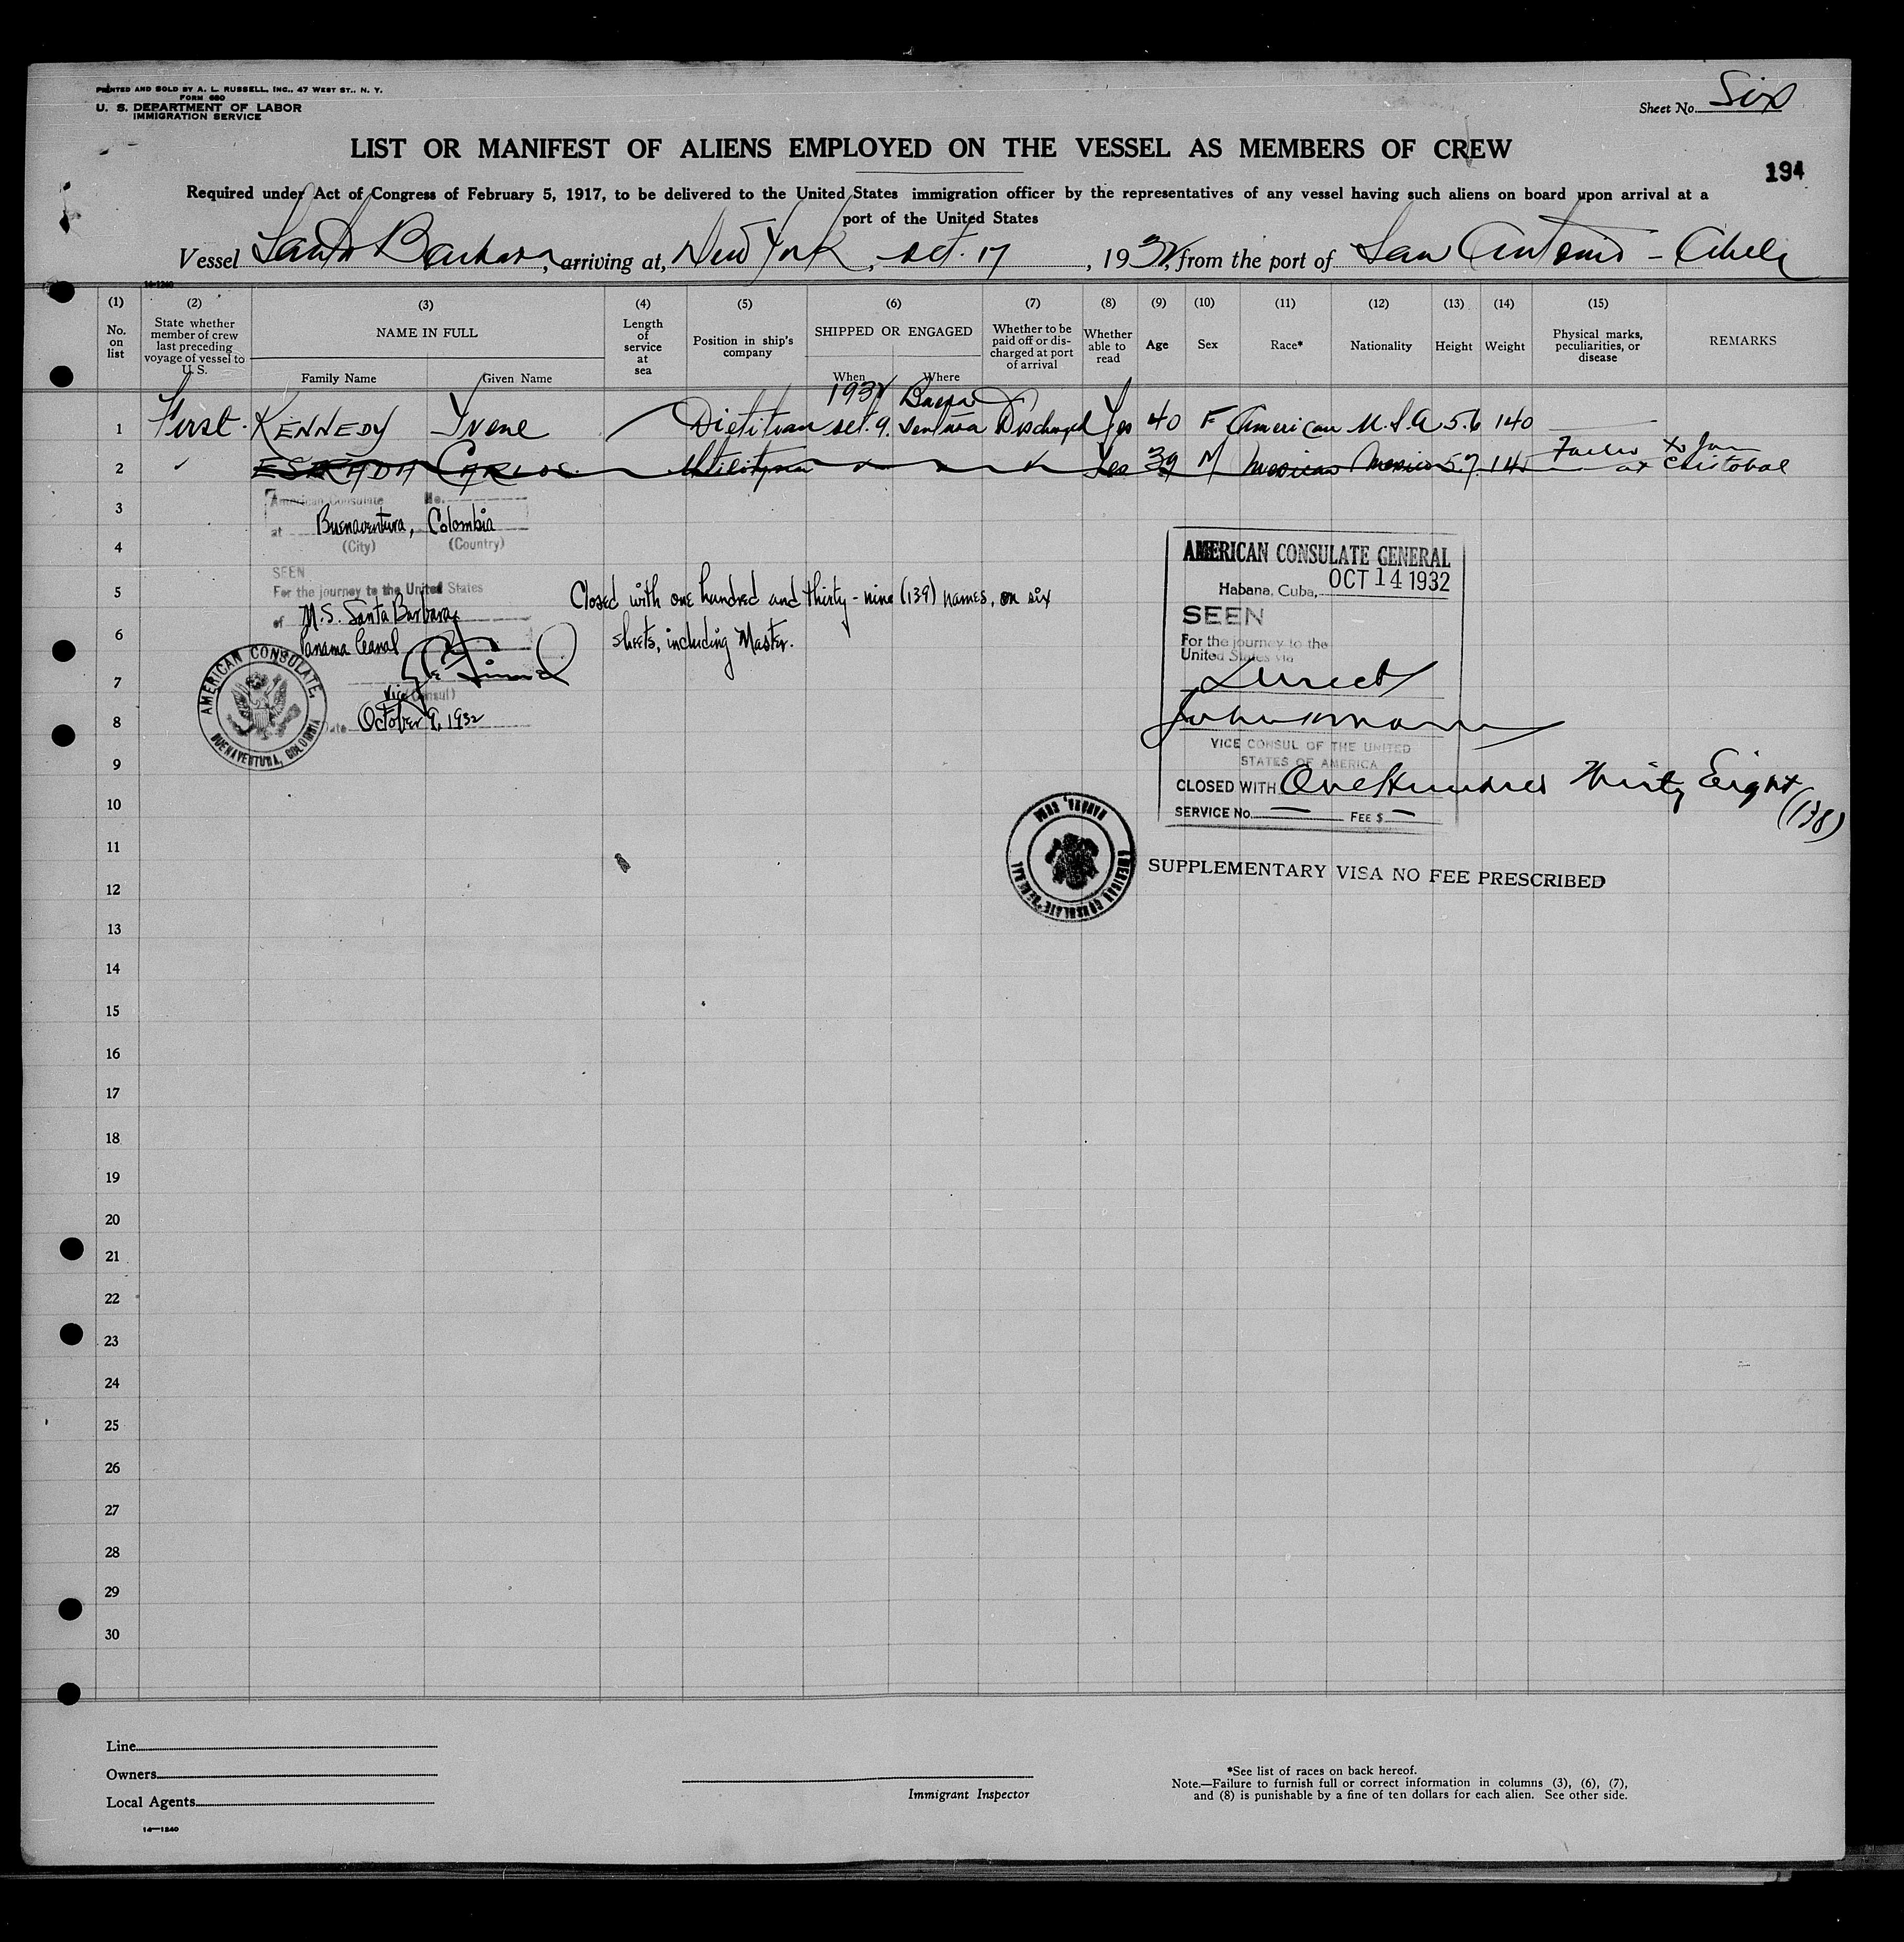 PRINTED AND SOLD BY A. L. RUSSELL, INC., 47 WEST ST., N. Y.
FORM 680
U. S. DEPARTMENT OF LABOR
IMMIGRATION SERVICE
Sheet No. Six
LIST OR MANIFEST OF ALIENS EMPLOYED ON THE VESSEL AS MEMBERS OF CREW
194
Required under Act of Congress of February 5, 1917, to be delivered to the United States immigration officer by the representatives of any vessel having such aliens on board upon arrival at a
port of the United States
Vessel Santa Barbara, arriving at, New York, Oct. 17, 1932, from the port of San Antonio - Chile
14-1240
(1) (2) (3) (4) (5) (6) (7) (8) (9) (10) (11) (12) (13) (14) (15)
No. on list
State whether member of crew last preceding voyage of vessel to U.S.
NAME IN FULL
Family Name Given Name
Length of service at sea
Position in ship's company
SHIPPED OR ENGAGED
When Where
Whether to be paid off or discharged at port of arrival
Whether able to read
Age
Sex
Race*
Nationality
Height
Weight
Physical marks, peculiarities, or disease
REMARKS
1932 Buena
1 First. KENNEDY Dietitian Oct. 9. Ventura Discharged Yes 40 F American U.S.A 5.6 140
2 ✓ ESTRADA CARLOS Utilityman Yes 39 M Mexican Mexico 5.7 145 Failed to Join at Cristobal
3
American Consulate No.
at Buenaventura, Colombia
(City) (Country)
4
SEEN
5
For the journey to the United States
of M.S. Santa Barbara
6
Panama Canal
7
Vice Consul)
8
Date October 9, 1932
AMERICAN CONSULATE,
BUENAVENTURA, COLOMBIA
Closed with one hundred and thirty-nine (139) names, on six
sheets, including Master.
AMERICAN CONSULATE GENERAL
Habana, Cuba, OCT 14 1932
SEEN
For the journey to the
United States via
Direct
VICE CONSUL OF THE UNITED
STATES OF AMERICA
CLOSED WITH One Hundred Thirty Eight
(138)
SERVICE No. — FEE $ —
AMERICAN CONSULATE GENERAL
HABANA, CUBA
SUPPLEMENTARY VISA NO FEE PRESCRIBED
9
10
11
12
13
14
15
16
17
18
19
20
21
22
23
24
25
26
27
28
29
30
Line
Owners
Local Agents
14—1240
Immigrant Inspector
*See list of races on back hereof.
Note.—Failure to furnish full or correct information in columns (3), (6), (7),
and (8) is punishable by a fine of ten dollars for each alien. See other side.